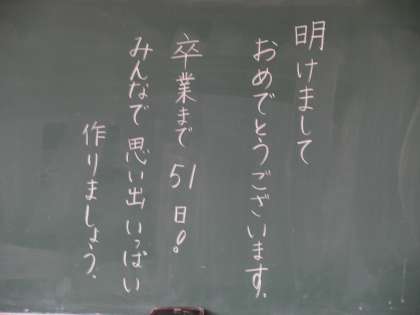 明けまして
おめでとうございます。
卒業まで51日!
みんなで思い出いっぱい
作りましょう。